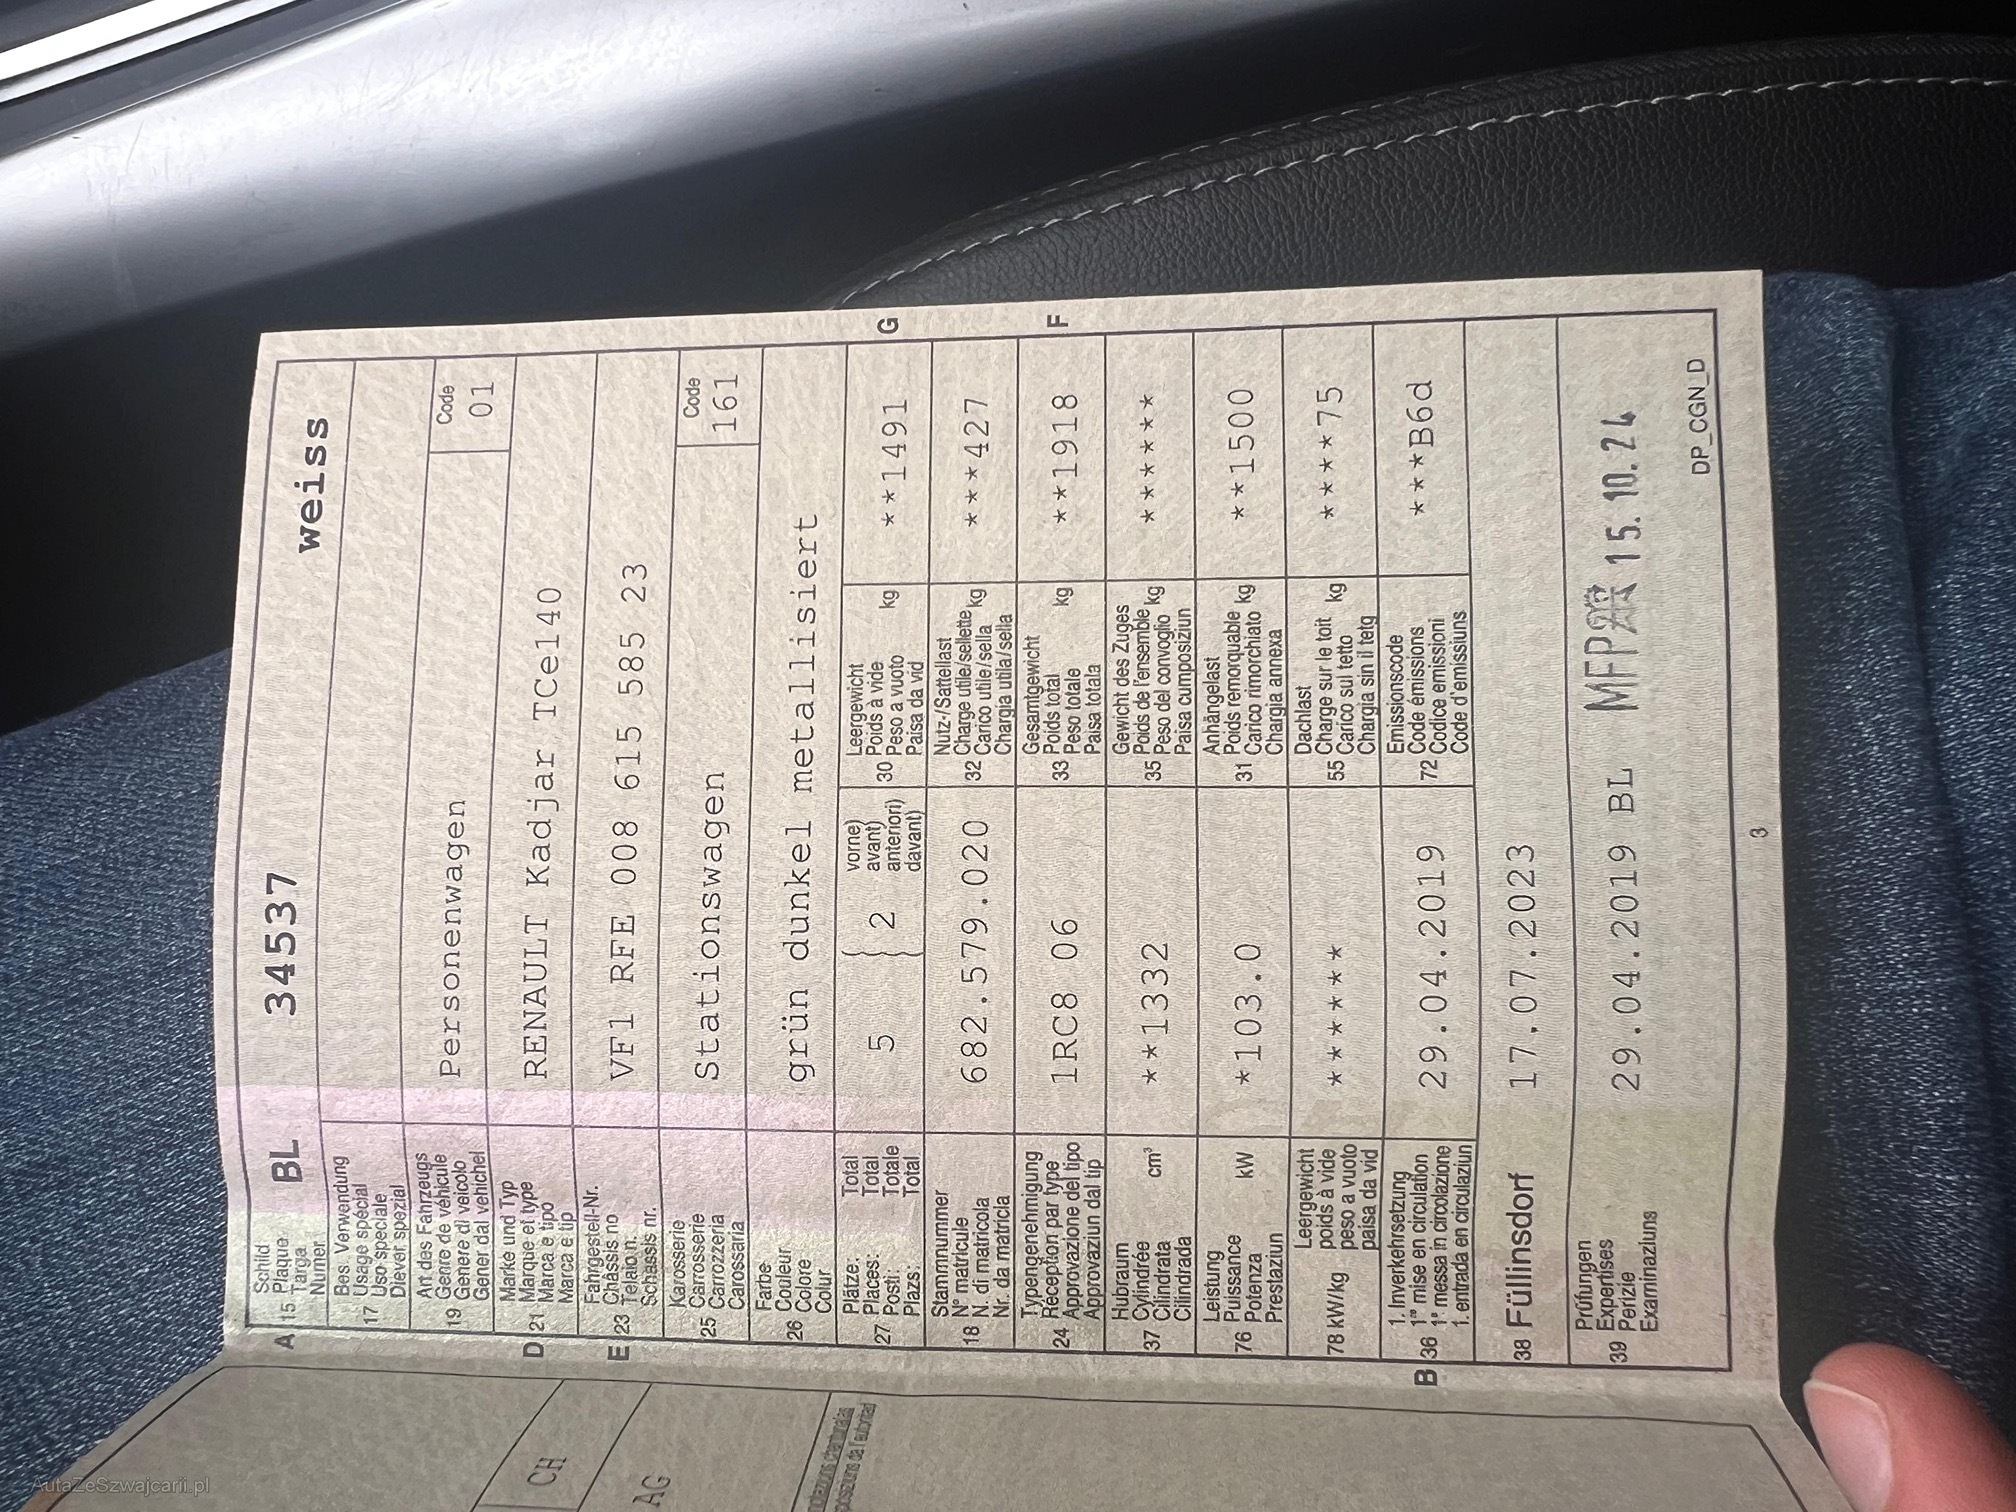 A 15 Schild Plaque Targa Numer BL 34537 weiss
17 Bes. Verwendung
Usage spécial
Uso speciale
Diever spezial
19 Art des Fahrzeugs
Genre de véhicule
Genere di veicolo
Gener dal vehichel
Personenwagen
Code
01
D 21 Marke und Typ
Marque et type
Marca e tipo
Marca e tip
RENAULT Kadjar TCe140
E 23 Fahrgestell-Nr.
Châssis no
Telaio n.
Schassis nr.
VF1 RFE 008 615 585 23
25 Karosserie
Carrosserie
Carrozzeria
Carossaria
Stationswagen
Code
161
26 Farbe
Couleur
Colore
Colur
grün dunkel metallisiert
27 Plätze: Total
Places: Total
Posti: Totale
Plazs.: Total
5
2
vorne)
avant)
anteriori)
davant)
30 Leergewicht
Poids à vide
Peso a vuoto
Paisa da vid
kg
**1491
G
18 Stammnummer
N° matricule
N. di matricola
Nr. da matricla
682.579.020
32 Nutz-/Sattellast
Charge utile/sellette
Carico utile/sella
Chargia utila/sella
kg
***427
24 Typengenehmigung
Réception par type
Approvazione del tipo
Approvaziun dal tip
1RC8 06
33 Gesamtgewicht
Poids total
Peso totale
Paisa totala
kg
**1918
F
37 Hubraum
Cylindrée
Cilindrata
Cilindrada
cm³
**1332
35 Gewicht des Zuges
Poids de l'ensemble
Peso del convoglio
Paisa cumposiziun
kg
******
76 Leistung
Puissance
Potenza
Prestaziun
kW
*103.0
31 Anhängelast
Poids remorquable
Carico rimorchiato
Chargia annexa
kg
**1500
78 kW/kg Leergewicht
poids à vide
peso a vuoto
paisa da vid
******
55 Dachlast
Charge sur le toit
Carico sul tetto
Chargia sin il tetg
kg
****75
B 36 1. Inverkehrsetzung
1re mise en circulation
1a messa in circolazione
1. entrada en circulaziun
29.04.2019
72 Emissionscode
Code émissions
Codice emissioni
Code d'emissiuns
***B6d
38 Füllinsdorf 17.07.2023
39 Prüfungen
Expertises
Perizie
Examinaziuns
29.04.2019 BL MFP 15.10.24
DP_CGN_D
3
CH
AG
AutaZeSzwajcarii.pl